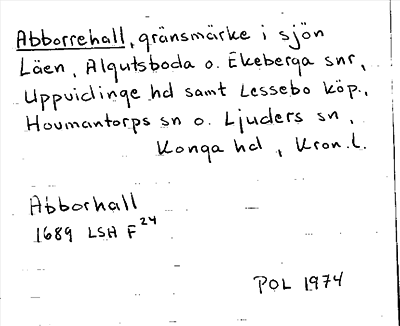 Abborrehall, gränsmärke i sjön
Läen, Algutsboda o. Ekeberga snr,
Uppvidinge hd samt Lessebo köp.,
Hovmantorps sn o. Ljuders sn,
Konga hd, Kron.l.
Abborhall
1689 LSH F24
POL 1974